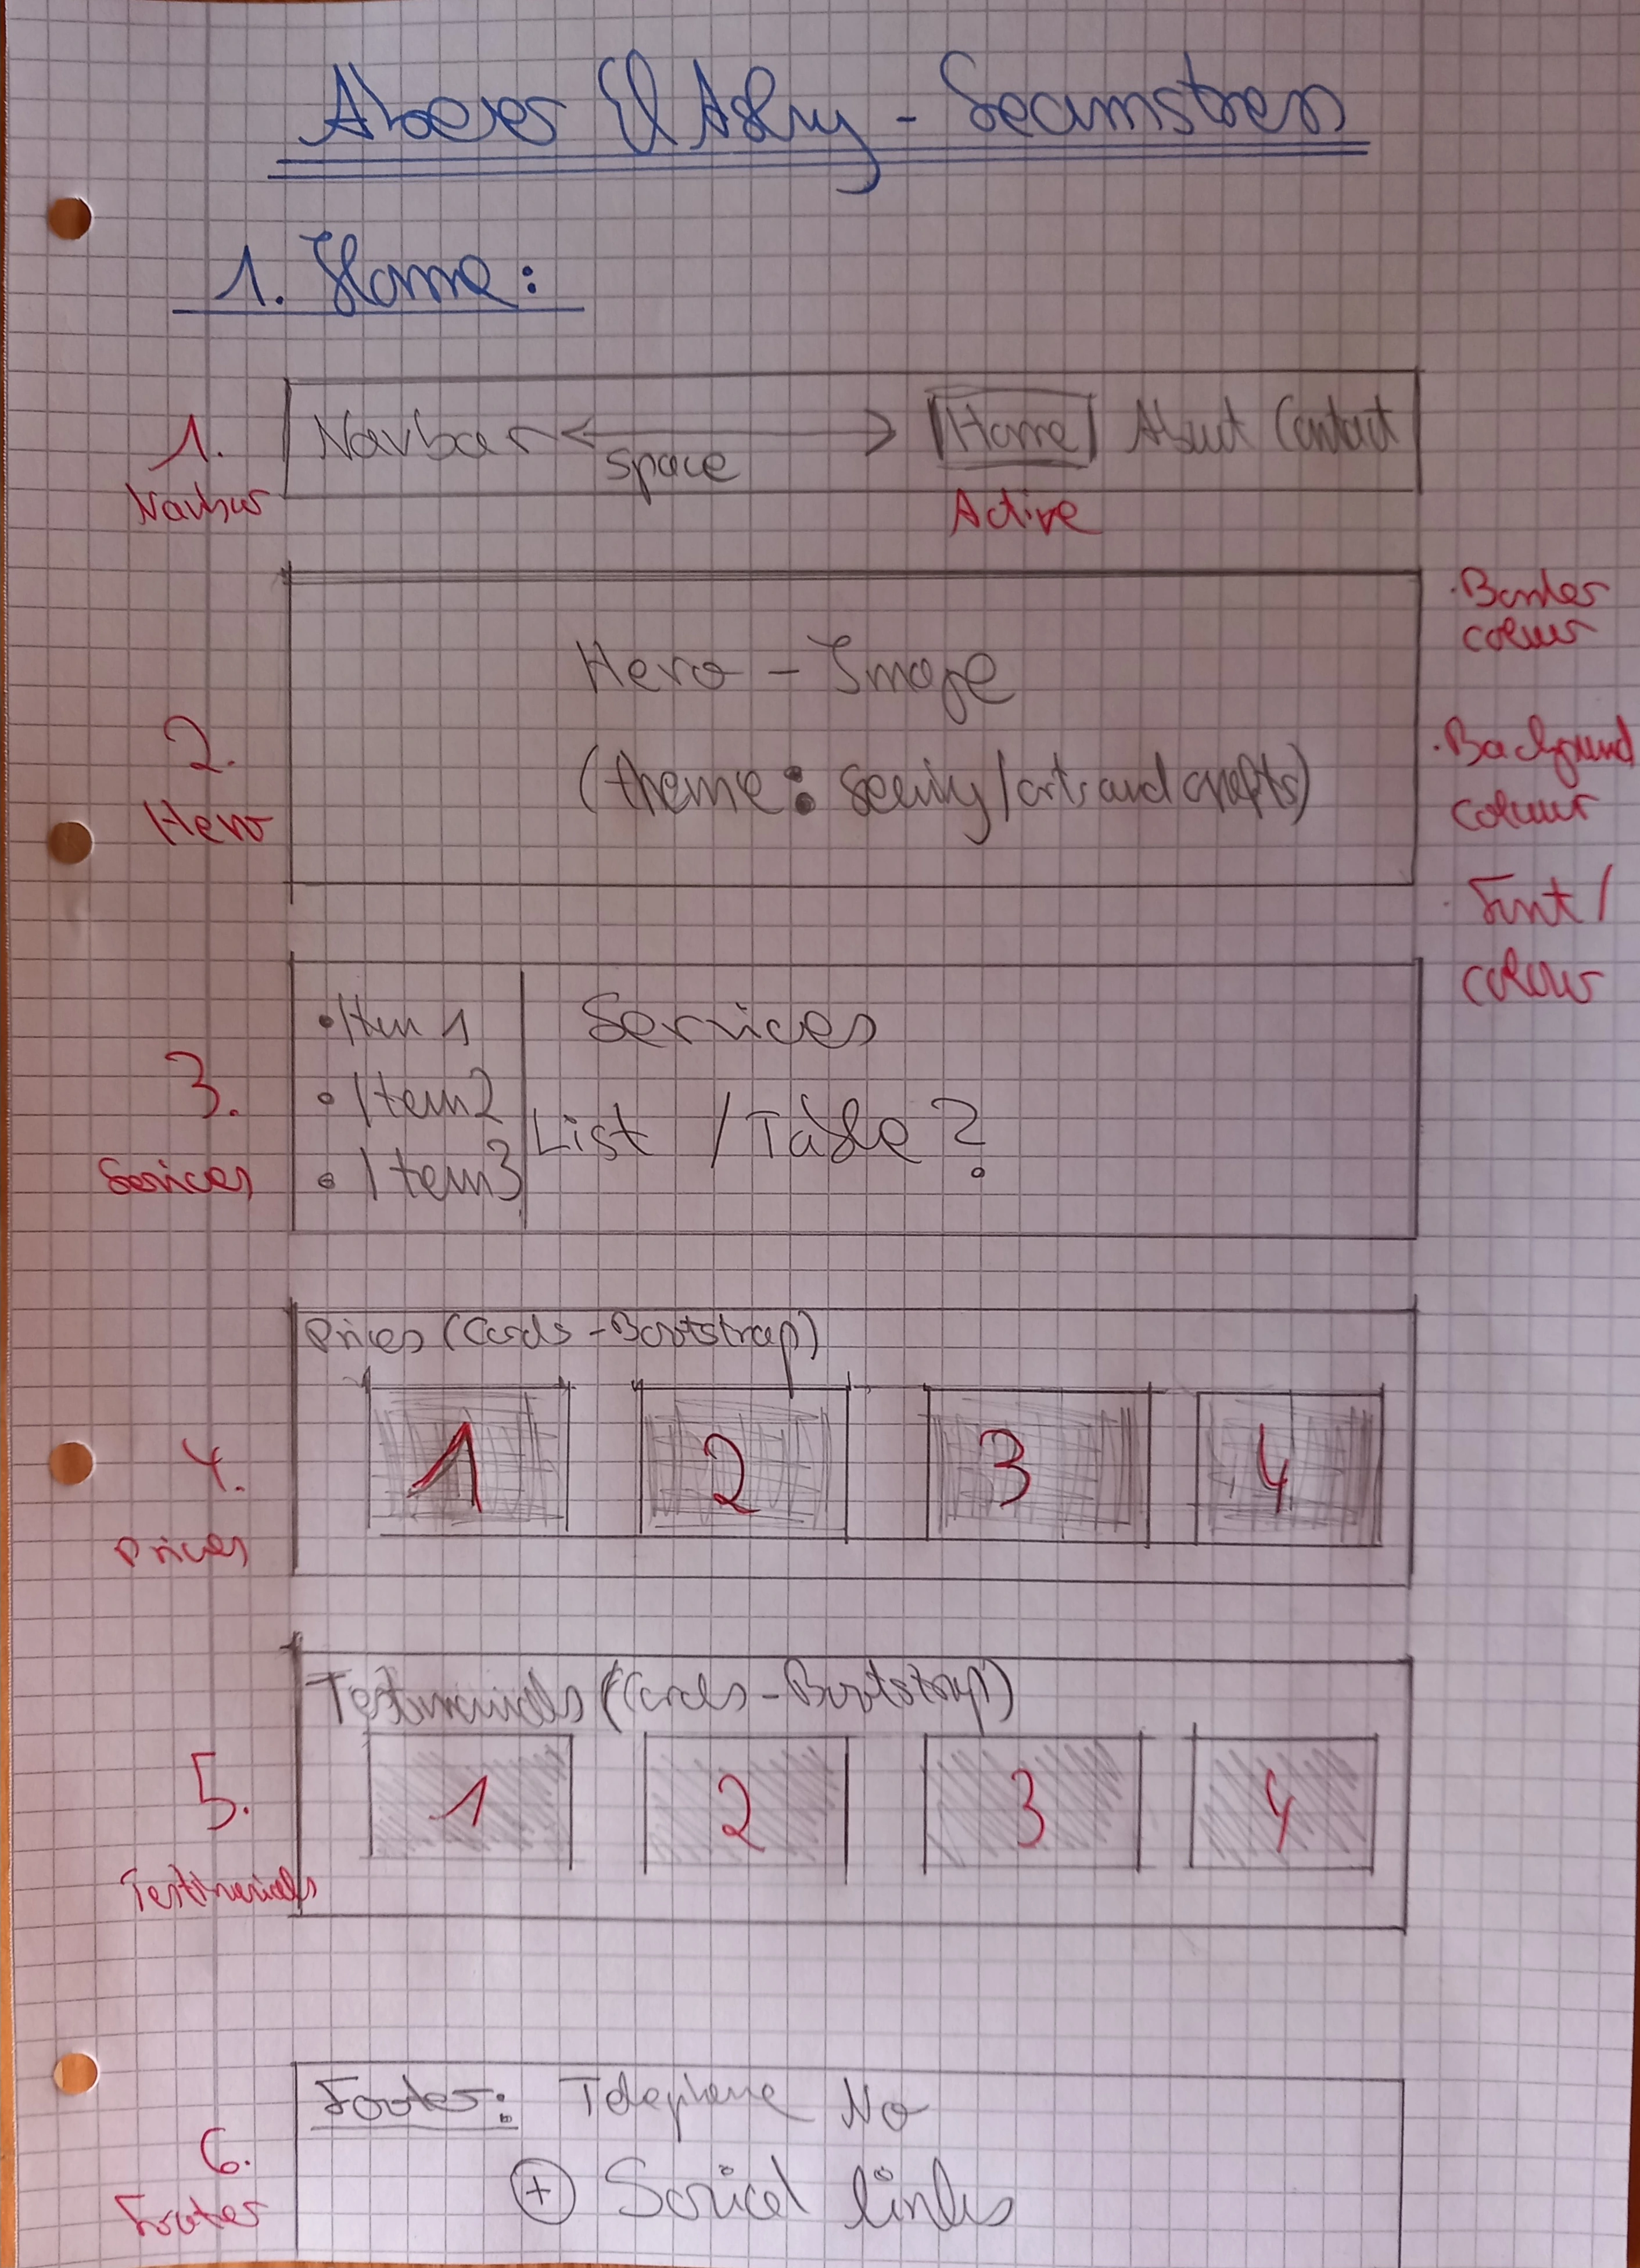 Abeer El Ashry - Seamstress
1. Home:
1. Navbar
Navbar space Home About Contact
Active
2. Hero
Hero - Image
(theme: sewing/arts and crafts)
· Border colour
· Background colour
· Font / colour
3. Services
• Item 1
• Item2
• Item3
Services
List / Table?
4. Prices
Prices (Cards - Bootstrap)
1 2 3 4
5. Testimonials
Testimonials (Cards - Bootstrap)
1 2 3 4
6. Footer
Footer: Telephone No
+ Social links